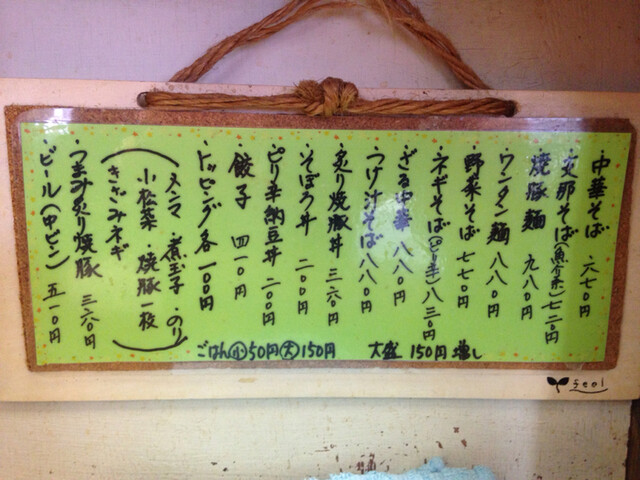 ・中華そば 六七〇円
・支那そば(魚介系)七二〇円
・焼豚麺 九八〇円
・ワンタン麺 八八〇円
・野菜そば 七七〇円
・ネギそば(ピリ辛)八三〇円
・ざる中華 八八〇円
・つけ汁そば 八八〇円
・炙り焼豚丼 三六〇円
・そぼろ丼 二〇〇円
・ピリ辛納豆丼 二〇〇円
・餃子 四一〇円
・トッピング各一〇〇円
(メンマ・煮玉子・のり
小松菜・焼豚一枚
きざみネギ)
・つまみ炙り焼豚 三六〇円
・ビール(中ビン) 五一〇円
ごはん小50円大150円 大盛 150円増し